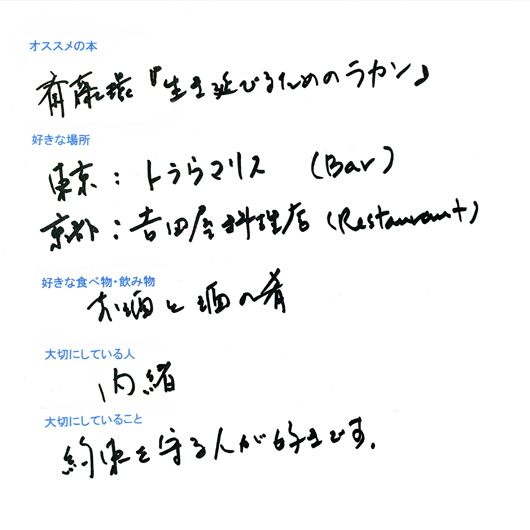 オススメの本
斎藤環『生き延びるためのラカン』
好きな場所
東京：トラウマリス （Bar）
京都：吉田屋料理店（Restaurant）
好きな食べ物・飲み物
お酒と酒の肴
大切にしている人
内緒
大切にしていること
約束を守る人が好きです。